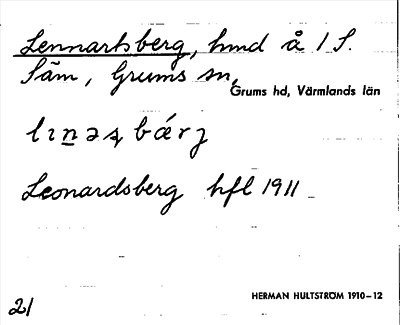 Lennartsberg, hmd å 1 S.
Säm, Grums sn,
Grums hd, Värmlands län
Leonardsberg hfl 1911
HERMAN HULTSTRÖM 1910–12
21